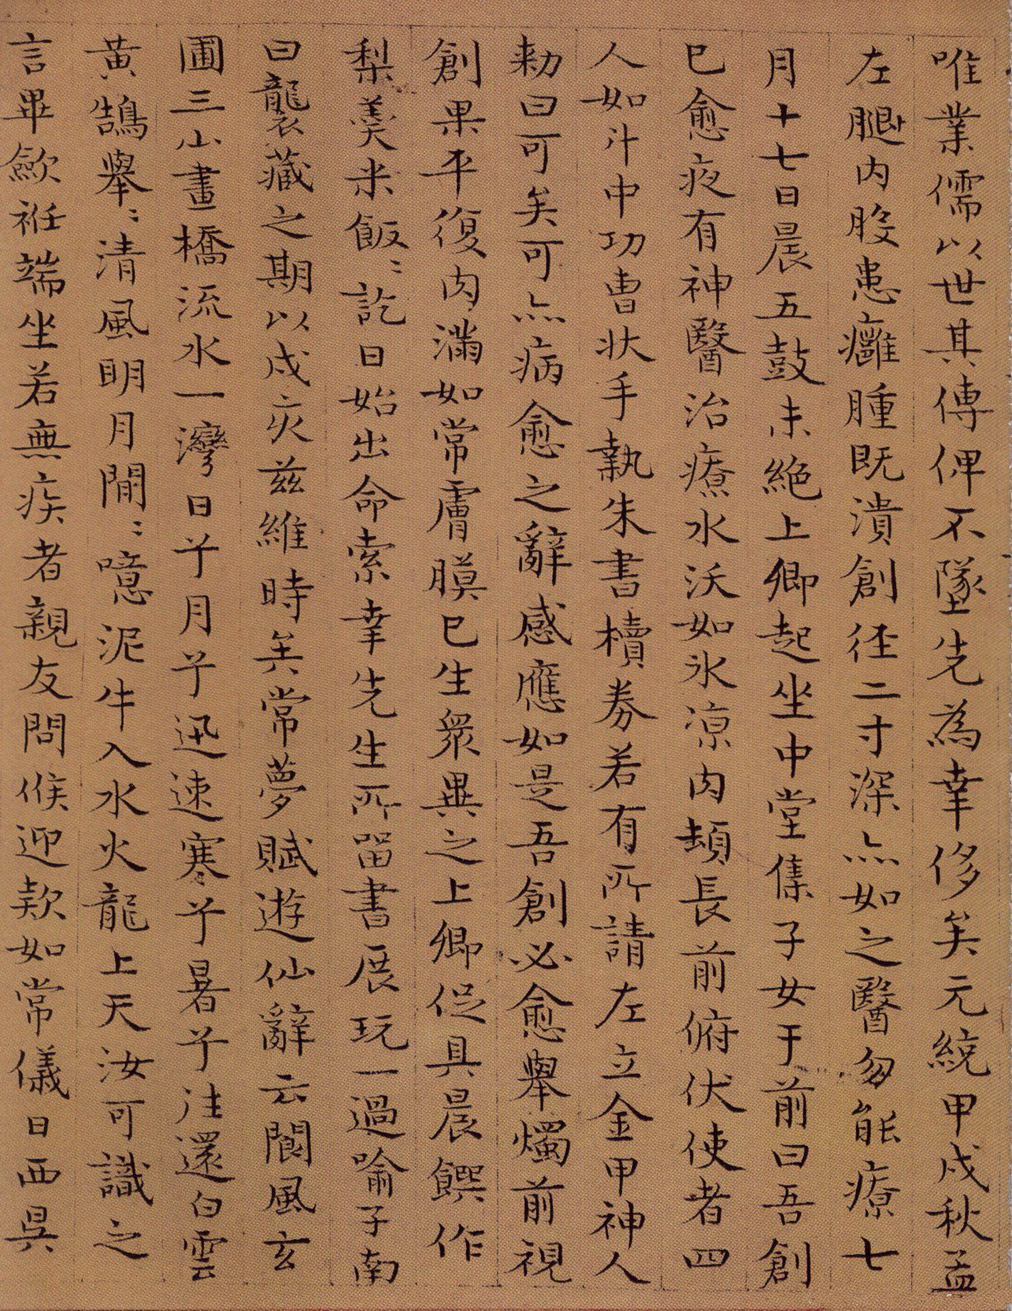 唯業儒以世其傳俾不墜先為幸侈矣元統甲戌秋孟
左腿內股患癰腫既潰創徑二寸深亦如之醫匆能療七
月十七日晨五鼓未絕上卿起坐中堂集子女于前曰吾創
已愈夜有神醫治療水沃如氷涼肉頓長前俯伏使者四
人如斗中功曹狀手執朱書櫝券若有所請左立金甲神人
勑曰可矣可亦病愈之辭感應如是吾創必愈舉燭前視
創果平復肉滿如常膚膜已生眾異之上卿促具晨饌作
梨羹米飯〻訖日始出命索幸先生所留書展玩一過喻子南
曰襲藏之期以戌亥茲維時矣常夢賦遊仙辭云閬風玄
圃三山畫橋流水一灣日兮月兮迅速寒兮暑兮往還白雲
黃鵠舉〻清風明月閒〻噫泥牛入水火龍上天汝可識之
言畢斂袵端坐若無疾者親友問候迎款如常儀日西昃